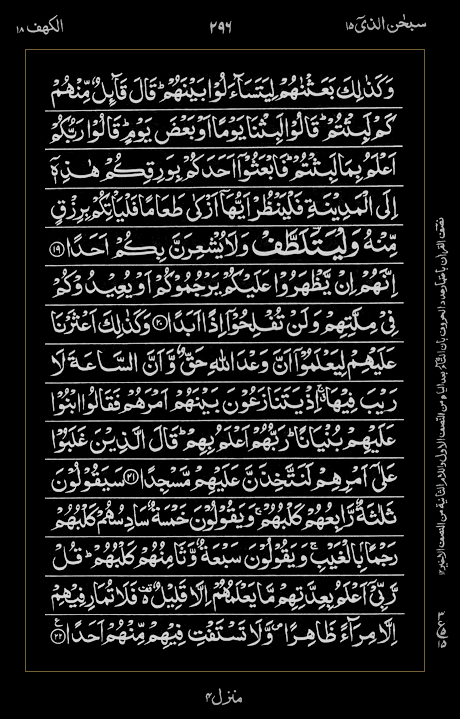 سبحٰن الذیٓ ۱۵
۲۹۶
الکھف ۱۸
وَكَذٰلِكَ بَعَثْنٰهُمْ لِيَتَسَآءَلُوْا بَيْنَهُمْ ؕ قَالَ قَآئِلٌ مِّنْهُمْ
كَمْ لَبِثْتُمْ ؕ قَالُوْا لَبِثْنَا يَوْمًا اَوْ بَعْضَ يَوْمٍ ؕ قَالُوْا رَبُّكُمْ
اَعْلَمُ بِمَا لَبِثْتُمْ ؕ فَابْعَثُوْۤا اَحَدَكُمْ بِوَرِقِكُمْ هٰذِهٖۤ
اِلَى الْمَدِيْنَةِ فَلْيَنْظُرْ اَيُّهَاۤ اَزْكٰى طَعَامًا فَلْيَاْتِكُمْ بِرِزْقٍ
مِّنْهُ وَلْيَتَلَطَّفْ وَلَا يُشْعِرَنَّ بِكُمْ اَحَدًا ﴿۱۹﴾
اِنَّهُمْ اِنْ يَّظْهَرُوْا عَلَيْكُمْ يَرْجُمُوْكُمْ اَوْ يُعِيْدُوْكُمْ
فِيْ مِلَّتِهِمْ وَلَنْ تُفْلِحُوْۤا اِذًا اَبَدًا ﴿۲۰﴾ وَكَذٰلِكَ اَعْثَرْنَا
عَلَيْهِمْ لِيَعْلَمُوْۤا اَنَّ وَعْدَ اللّٰهِ حَقٌّ وَّاَنَّ السَّاعَةَ لَا
رَيْبَ فِيْهَا ۚ اِذْ يَتَنَازَعُوْنَ بَيْنَهُمْ اَمْرَهُمْ فَقَالُوا ابْنُوْا
عَلَيْهِمْ بُنْيَانًا ؕ رَبُّهُمْ اَعْلَمُ بِهِمْ ؕ قَالَ الَّذِيْنَ غَلَبُوْا
عَلٰٓى اَمْرِهِمْ لَنَتَّخِذَنَّ عَلَيْهِمْ مَّسْجِدًا ﴿۲۱﴾ سَيَقُوْلُوْنَ
ثَلٰثَةٌ رَّابِعُهُمْ كَلْبُهُمْ ۚ وَيَقُوْلُوْنَ خَمْسَةٌ سَادِسُهُمْ كَلْبُهُمْ
رَجْمًۢا بِالْغَيْبِ ۚ وَيَقُوْلُوْنَ سَبْعَةٌ وَّثَامِنُهُمْ كَلْبُهُمْ ؕ قُلْ
رَّبِّيْۤ اَعْلَمُ بِعِدَّتِهِمْ مَّا يَعْلَمُهُمْ اِلَّا قَلِيْلٌ ۫ فَلَا تُمَارِ فِيْهِمْ
اِلَّا مِرَآءً ظَاهِرًا ۪ وَّلَا تَسْتَفْتِ فِيْهِمْ مِّنْهُمْ اَحَدًا ﴿۲۲﴾
منزل ۴